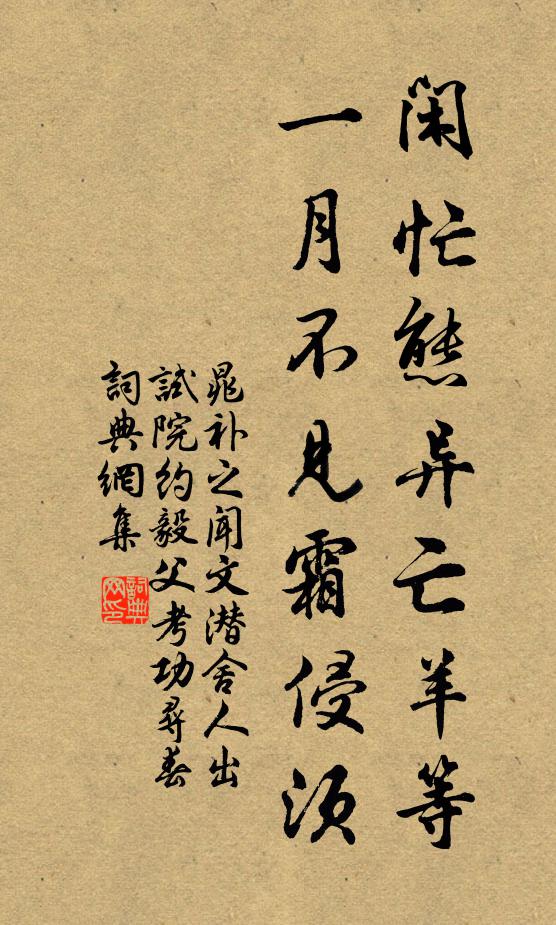 闲忙熊异亡羊等
一月不见霜侵须
晁补之闻文潜舍人出
試院约毅父考功尋春
詞典網集
詞典
网印